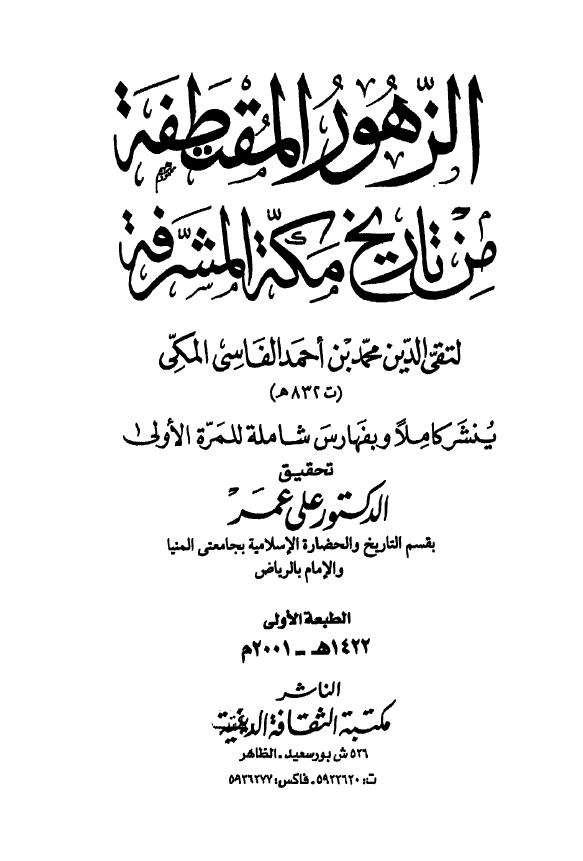 الزّهور المقتطفة
من تاريخ مكّة المشرّفة
لتقى الدّين محمّد بن أحمد الفاسى المكّى
(ت ٨٣٢ هـ)
يُنشر كاملاً وبفهارس شاملة للمرة الأولى
تحقيق
الدكتور على عمر
بقسم التاريخ والحضارة الإسلامية بجامعتى المنيا
والإمام بالرياض
الطبعة الأولى
١٤٢٢هـ - ٢٠٠١م
الناشر
مكتبة الثقافة الدينية
٥٣٦ ش بورسعيد - الظاهر
ت: ٥٩٢٢٦٢٠ - فاكس: ٥٩٣٦٢٧٧